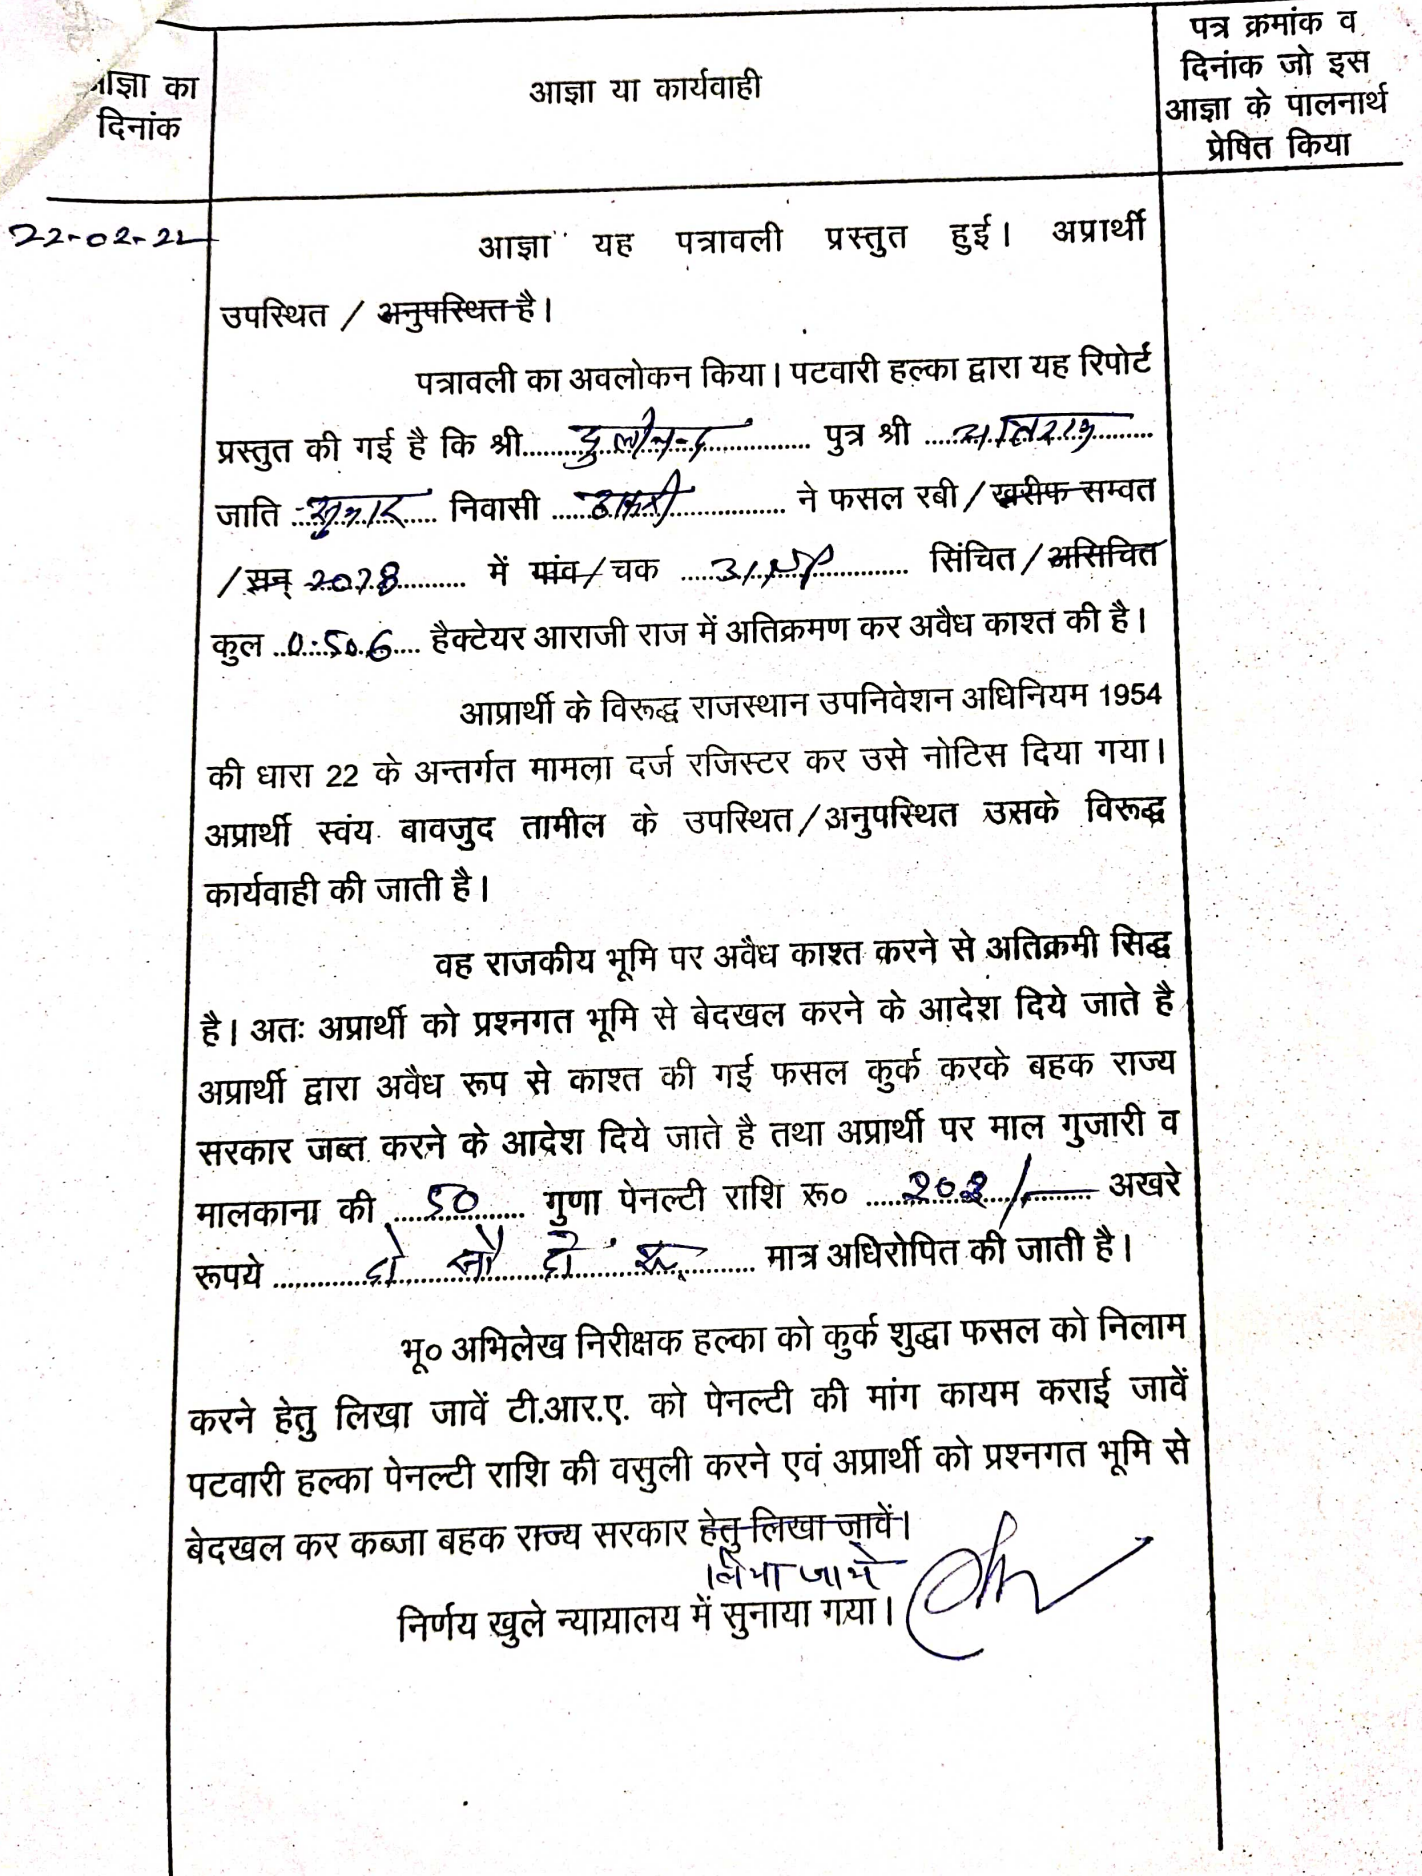 आज्ञा का दिनांक
आज्ञा या कार्यवाही
पत्र क्रमांक व
दिनांक जो इस
आज्ञा के पालनार्थ
प्रेषित किया
22-02-22
आज्ञा यह पत्रावली प्रस्तुत हुई। अप्रार्थी
उपस्थित / अनुपस्थित है।
पत्रावली का अवलोकन किया। पटवारी हल्का द्वारा यह रिपोर्ट
प्रस्तुत की गई है कि श्री.......... पुत्र श्री ..........
जाति .......... निवासी .......... ने फसल रबी / खरीफ सम्वत
/ सन् 2078 में गांव / चक .......... सिंचित / असिचित
कुल 0.506 हैक्टेयर आराजी राज में अतिक्रमण कर अवैध काश्त की है।
आप्रार्थी के विरूद्ध राजस्थान उपनिवेशन अधिनियम 1954
की धारा 22 के अन्तर्गत मामला दर्ज रजिस्टर कर उसे नोटिस दिया गया।
अप्रार्थी स्वंय बावजुद तामील के उपस्थित / अनुपस्थित उसके विरूद्ध
कार्यवाही की जाती है।
वह राजकीय भूमि पर अवैध काश्त करने से अतिक्रमी सिद्ध
है। अतः अप्रार्थी को प्रश्नगत भूमि से बेदखल करने के आदेश दिये जाते है
अप्रार्थी द्वारा अवैध रूप से काश्त की गई फसल कुर्क करके बहक राज्य
सरकार जब्त करने के आदेश दिये जाते है तथा अप्रार्थी पर माल गुजारी व
मालकाना की 50 गुणा पेनल्टी राशि रू० 202/- अखरे
रूपये दो सौ दो रू. मात्र अधिरोपित की जाती है।
भू० अभिलेख निरीक्षक हल्का को कुर्क शुद्धा फसल को निलाम
करने हेतु लिखा जावें टी.आर.ए. को पेनल्टी की मांग कायम कराई जावें
पटवारी हल्का पेनल्टी राशि की वसुली करने एवं अप्रार्थी को प्रश्नगत भूमि से
बेदखल कर कब्जा बहक राज्य सरकार हेतु लिखा जावें।
लिया जावे
निर्णय खुले न्यायालय में सुनाया गया।